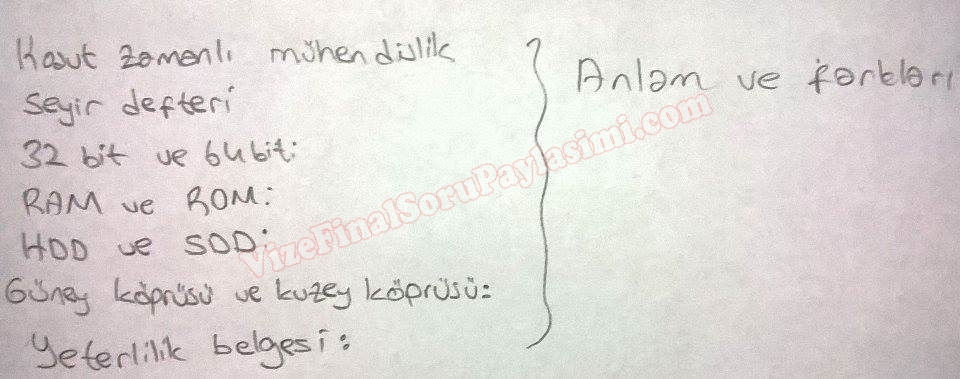 Kasıt zamanlı mühendislik
Seyir defteri
32 bit ve 64 bit:
RAM ve ROM:
HDD ve SDD:
Güney köprüsü ve kuzey köprüsü:
Yeterlilik belgesi:
Anlam ve farkları
VizeFinalSoruPaylasimi.com